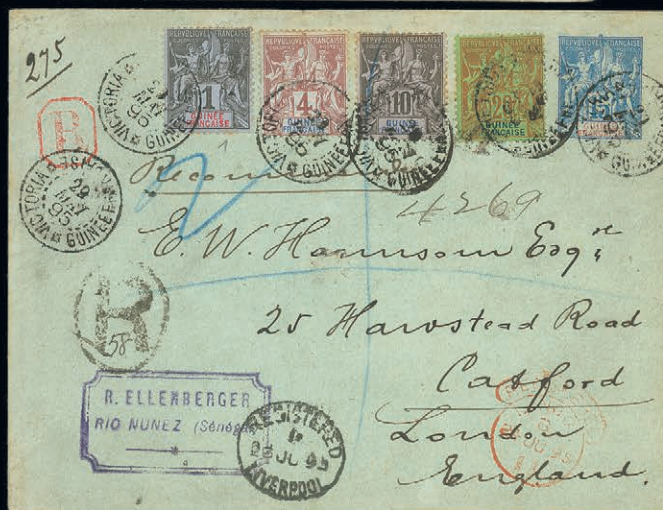 275
REPUBLIQUE FRANÇAISE
1
GUINÉE FRANÇAISE
REPUBLIQUE FRANÇAISE
4
GUINÉE FRANÇAISE
REPUBLIQUE FRANÇAISE
10
GUINÉE
REPUBLIQUE FRANÇAISE
GUINÉE FRANÇAISE
REPUBLIQUE FRANÇAISE
R
VICTORIA GUINÉE
29 MAI 95
4269
E. W. Harrison Esqre
25 Hawstead Road
Catford
London
England.
R
58
R. ELLENBERGER
RIO NUNEZ
REGISTERED
JU 95
LIVERPOOL